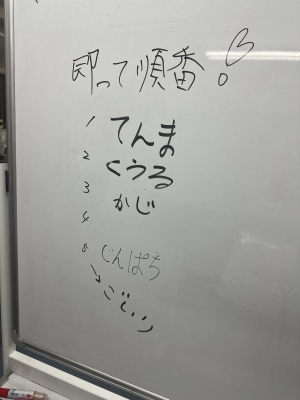 即って順番。
1 てんま
2 くうる
3 かじ
4
5 じんぱち